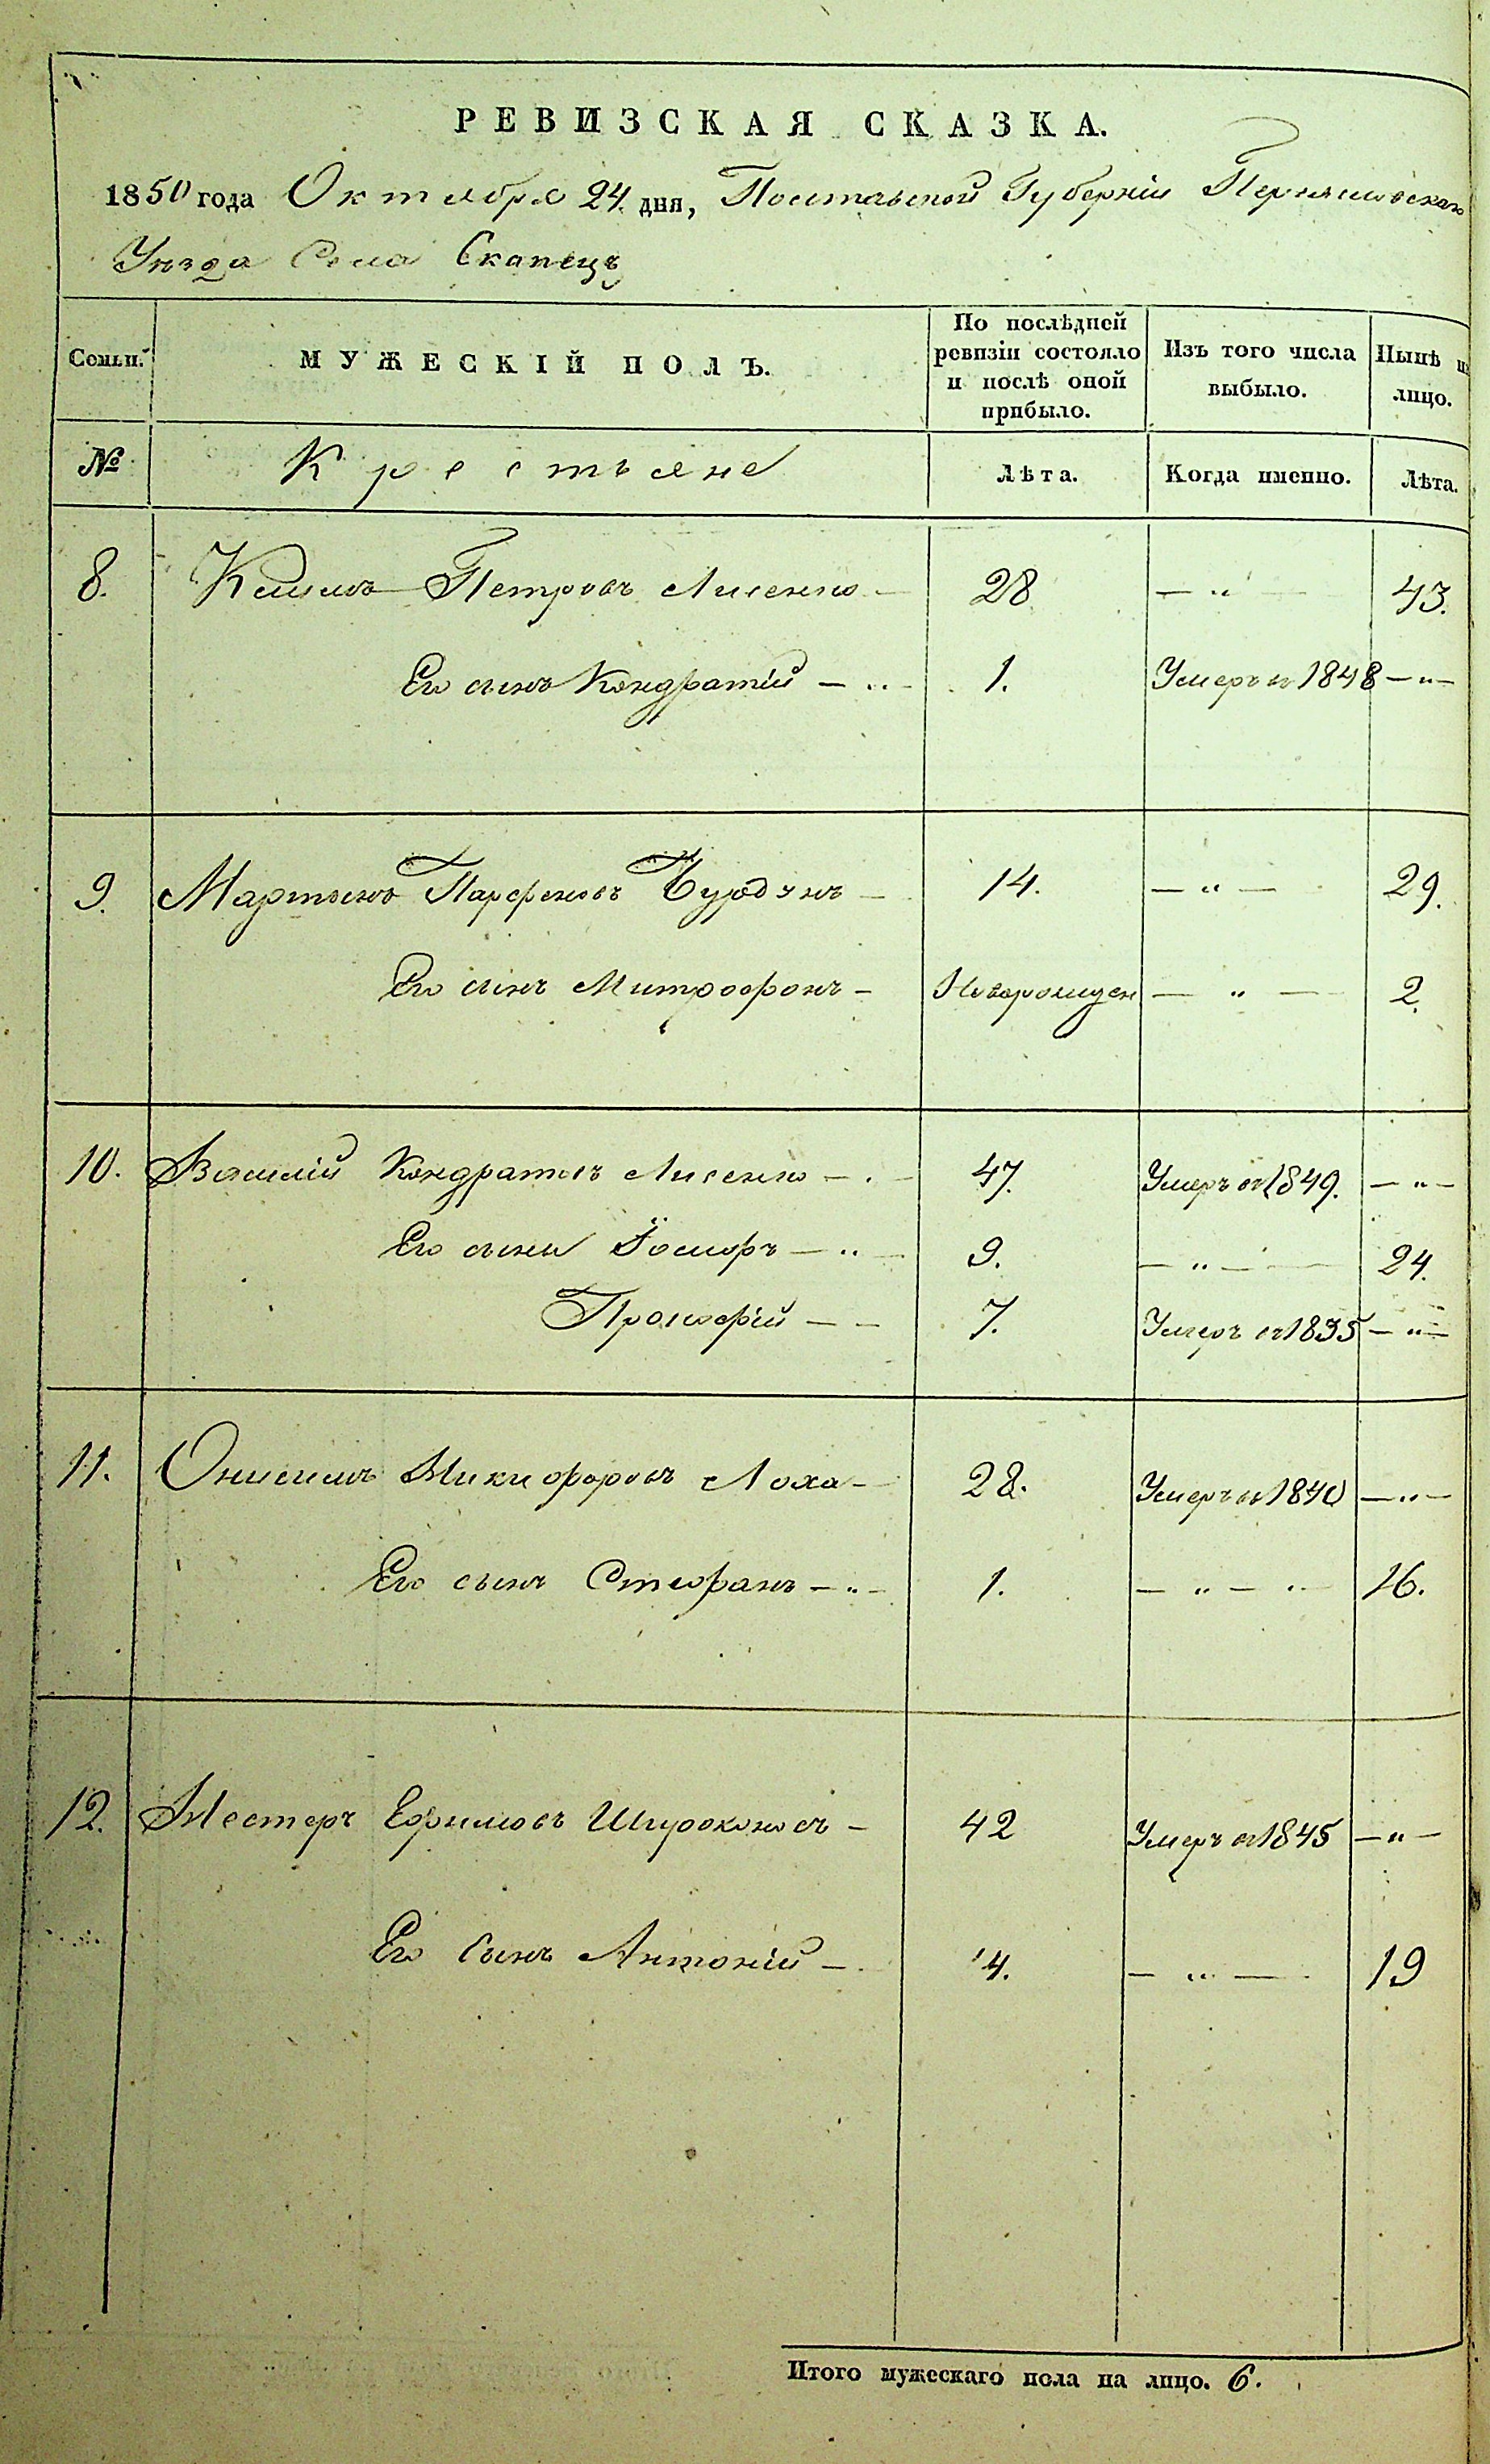 РЕВИЗСКАЯ СКАЗКА.
1850 года Октября 24. дня, Полтавской Губерніи
Уѣзда Села Скапецъ
Семьи. МУЖЕСКІЙ ПОЛЪ. По послѣдней ревизіи состояло и послѣ оной прибыло. Изъ того числа выбыло. Нынѣ на лицо.
№ Крестьяне Лѣта. Когда именно. Лѣта.
8. Климъ Петровъ Лисенко — 28 — „ — 43.
Его сынъ Кондратій — „ — 1. Умеръ въ 1848 — „ —
9. Мартынъ Парфеновъ — 14. — „ — 29.
Его сынъ Митрофанъ — Новорожден — „ — 2.
10. Василій Кондратовъ Лисенко — . — 47. Умеръ въ 1849. — „ —
Его сыны Іосифъ — „ — 9. — „ — 24.
Прокофій — — 7. Умеръ въ 1835 — „ —
11. Онисимъ Никифоровъ Лоха — 28. Умеръ въ 1840 — „ —
Его сынъ Стефанъ — „ — 1. — „ — „ 16.
12. Нестеръ Ефимовъ Широконосъ — 42 Умеръ въ 1845 — „ —
Его Сынъ Антоній — 4. — „ — 19
Итого мужескаго пола на лицо. 6.